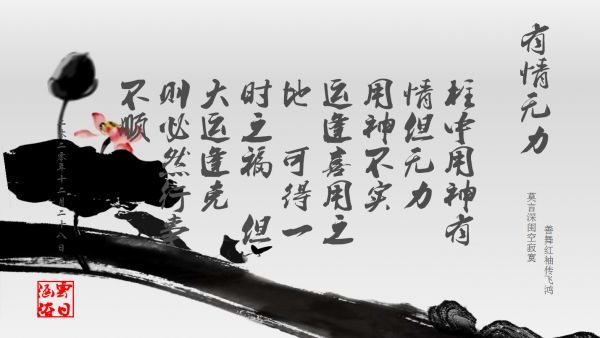 有情无力
莫言深闺空寂寞
善舞红袖传飞鸿
柱中用神有
情但无力
用神不实
运逢喜用之
地 可得一
时之福 但
大运逢克
则必然行事
不顺
二零年十二月二十八日